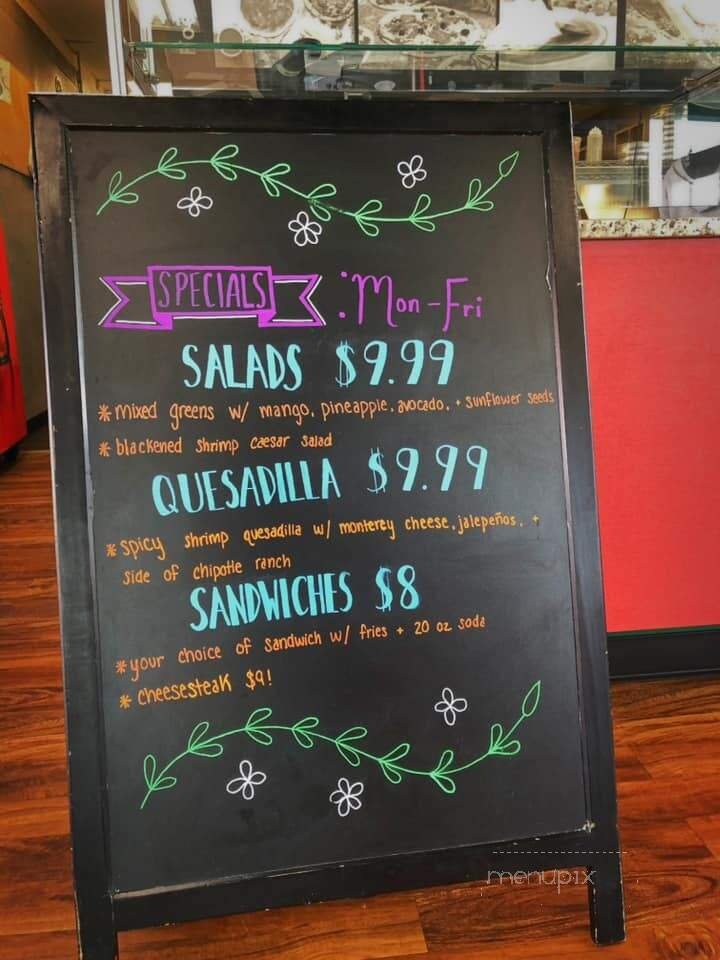 SPECIALS : Mon-Fri
SALADS $9.99
* mixed greens w/ mango, pineapple, avocado, + sunflower seeds
* blackened shrimp caesar salad
QUESADILLA $9.99
* spicy shrimp quesadilla w/ monterey cheese, jalepeños, +
side of chipotle ranch
SANDWICHES $8
* your choice of sandwich w/ fries + 20 oz soda
* cheesesteak $9!
menupix